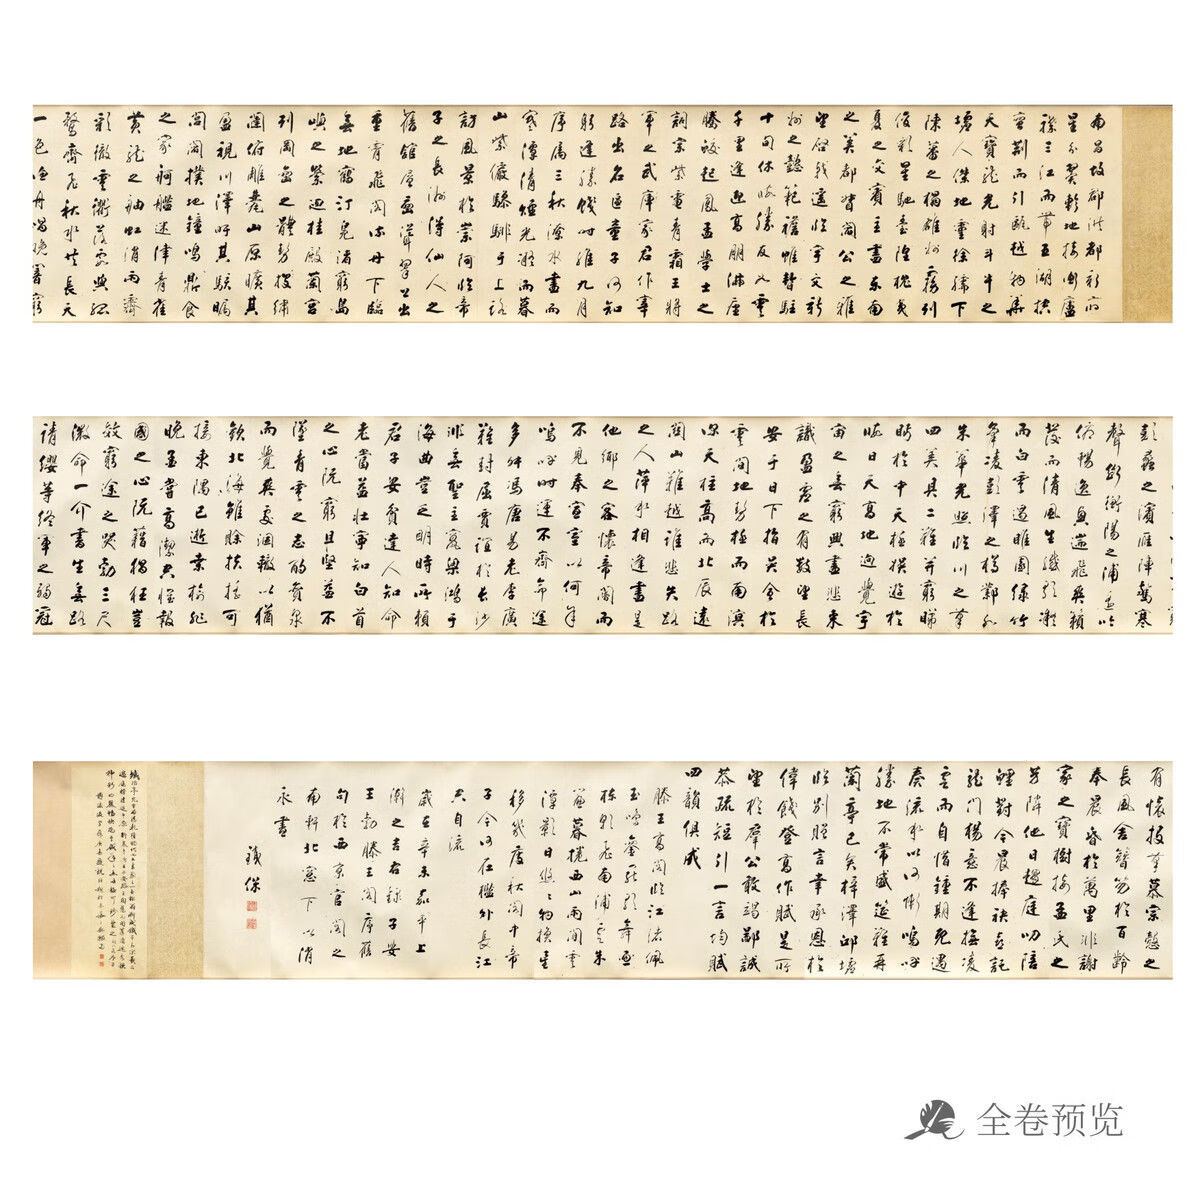 南昌故郡洪都新府
星分翼軫地接衡廬
襟三江而帶五湖控
蠻荊而引甌越物華
天寶龍光射斗牛之
墟人傑地靈徐孺下
陳蕃之榻雄州霧列
俊彩星馳臺隍枕夷
夏之交賓主盡東南
之美都督閻公之雅
望棨戟遙臨宇文新
州之懿範襜帷暫駐
十旬休暇勝友如雲
千里逢迎高朋滿座
騰蛟起鳳孟學士之
詞宗紫電青霜王將
軍之武庫家君作宰
路出名區童子何知
躬逢勝餞時維九月
序屬三秋潦水盡而
寒潭清煙光凝而暮
山紫儼驂騑于上路
訪風景於崇阿臨帝
子之長洲得仙人之
舊館層巒聳翠上出
重霄飛閣流丹下臨
無地鶴汀鳧渚窮島
嶼之縈迴桂殿蘭宮
列岡巒之體勢披繡
闥俯雕甍山原曠其
盈視川澤吁其駭矚
閭閻撲地鐘鳴鼎食
之家舸艦迷津青雀
黃龍之舳虹消雨霽
彩徹雲衢落霞與孤
鶩齊飛秋水共長天
一色漁舟唱晚響窮
彭蠡之濱雁陣驚寒
聲斷衡陽之浦遙吟
俯暢逸興遄飛爽籟
發而清風生纖歌凝
而白雲遏睢園綠竹
氣凌彭澤之樽鄴水
朱華光照臨川之筆
四美具二難并窮睇
眄於中天極娛遊於
暇日天高地迥覺宇
宙之無窮興盡悲來
識盈虛之有數望長
安于日下指吳會於
雲間地勢極而南溟
深天柱高而北辰遠
關山難越誰悲失路
之人萍水相逢盡是
他鄉之客懷帝閽而
不見奉宣室以何年
嗚呼時運不齊命途
多舛馮唐易老李廣
難封屈賈誼於長沙
非無聖主竄梁鴻于
海曲豈乏明時所賴
君子安貧達人知命
老當益壯寧知白首
之心阮窮且堅益不
墜青雲之志酌貪泉
而覺爽處涸轍以猶
歡北海雖賒扶搖可
接東隅已逝桑榆非
晚孟嘗高潔空懷報
國之心阮籍猖狂豈
效窮途之哭勃三尺
微命一介書生無路
請纓等終軍之弱冠
有懷投筆慕宗愨之
長風舍簪笏於百齡
奉晨昏於萬里非謝
家之寶樹接孟氏之
芳隣他日趨庭叨陪
鯉對今晨捧袂喜託
龍門楊意不逢撫凌
雲而自惜鍾期既遇
奏流水以何慚嗚呼
勝地不常盛筵難再
蘭亭已矣梓澤邱墟
臨別贈言幸承恩於
偉餞登高作賦是所
望於羣公敢竭鄙誠
恭疏短引一言均賦
四韻俱成
滕王高閣臨江渚佩
玉鳴鸞罷歌舞畫
棟朝飛南浦雲朱
簾暮捲西山雨閒雲
潭影日悠悠物換星
移幾度秋閣中帝
子今何在檻外長江
空自流
歲在辛未嘉平上
澣之吉右錄子安
王勃滕王閣序舊
句於西京官閣之
南軒北窓下以消
永晝
鐵保
全卷预览